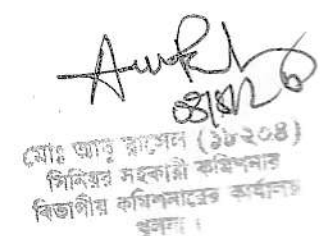 মোঃ আবু রাসেল (১৮২০৪)
সিনিয়র সহকারী কমিশনার
বিভাগীয় কমিশনারের কার্যালয়
খুলনা ।